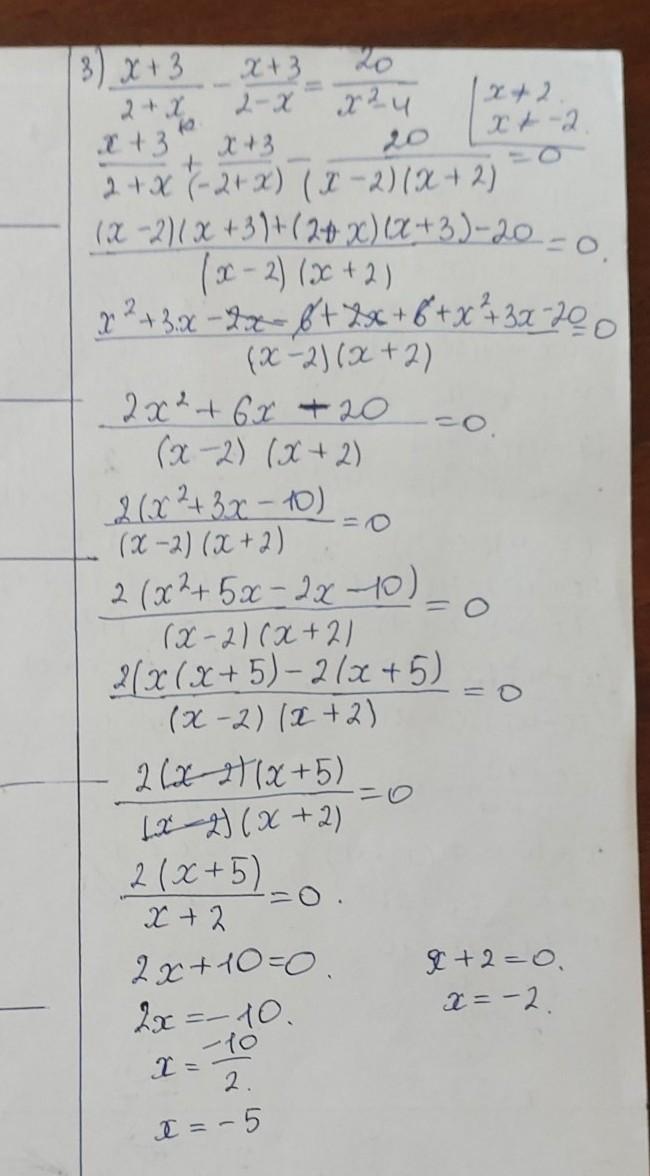 3) (x+3)/(2+x) - (x+3)/(2-x) = 20/(x²-4) [x ≠ 2. x ≠ -2.
(x+3)/(2+x) + (x+3)/(-2+x) - 20/((x-2)(x+2)) = 0
((x-2)(x+3)+(2+x)(x+3)-20)/((x-2)(x+2)) = 0.
(x²+3x-2x-6+2x+6+x²+3x-20)/((x-2)(x+2)) = 0
(2x²+6x-20)/((x-2)(x+2)) = 0.
2(x²+3x-10)/((x-2)(x+2)) = 0
2(x²+5x-2x-10)/((x-2)(x+2)) = 0
2(x(x+5)-2(x+5)/((x-2)(x+2)) = 0
2(x-2)(x+5)/((x-2)(x+2)) = 0
2(x+5)/(x+2) = 0.
2x+10=0. x+2=0.
2x=-10. x=-2.
x = -10/2.
x = -5